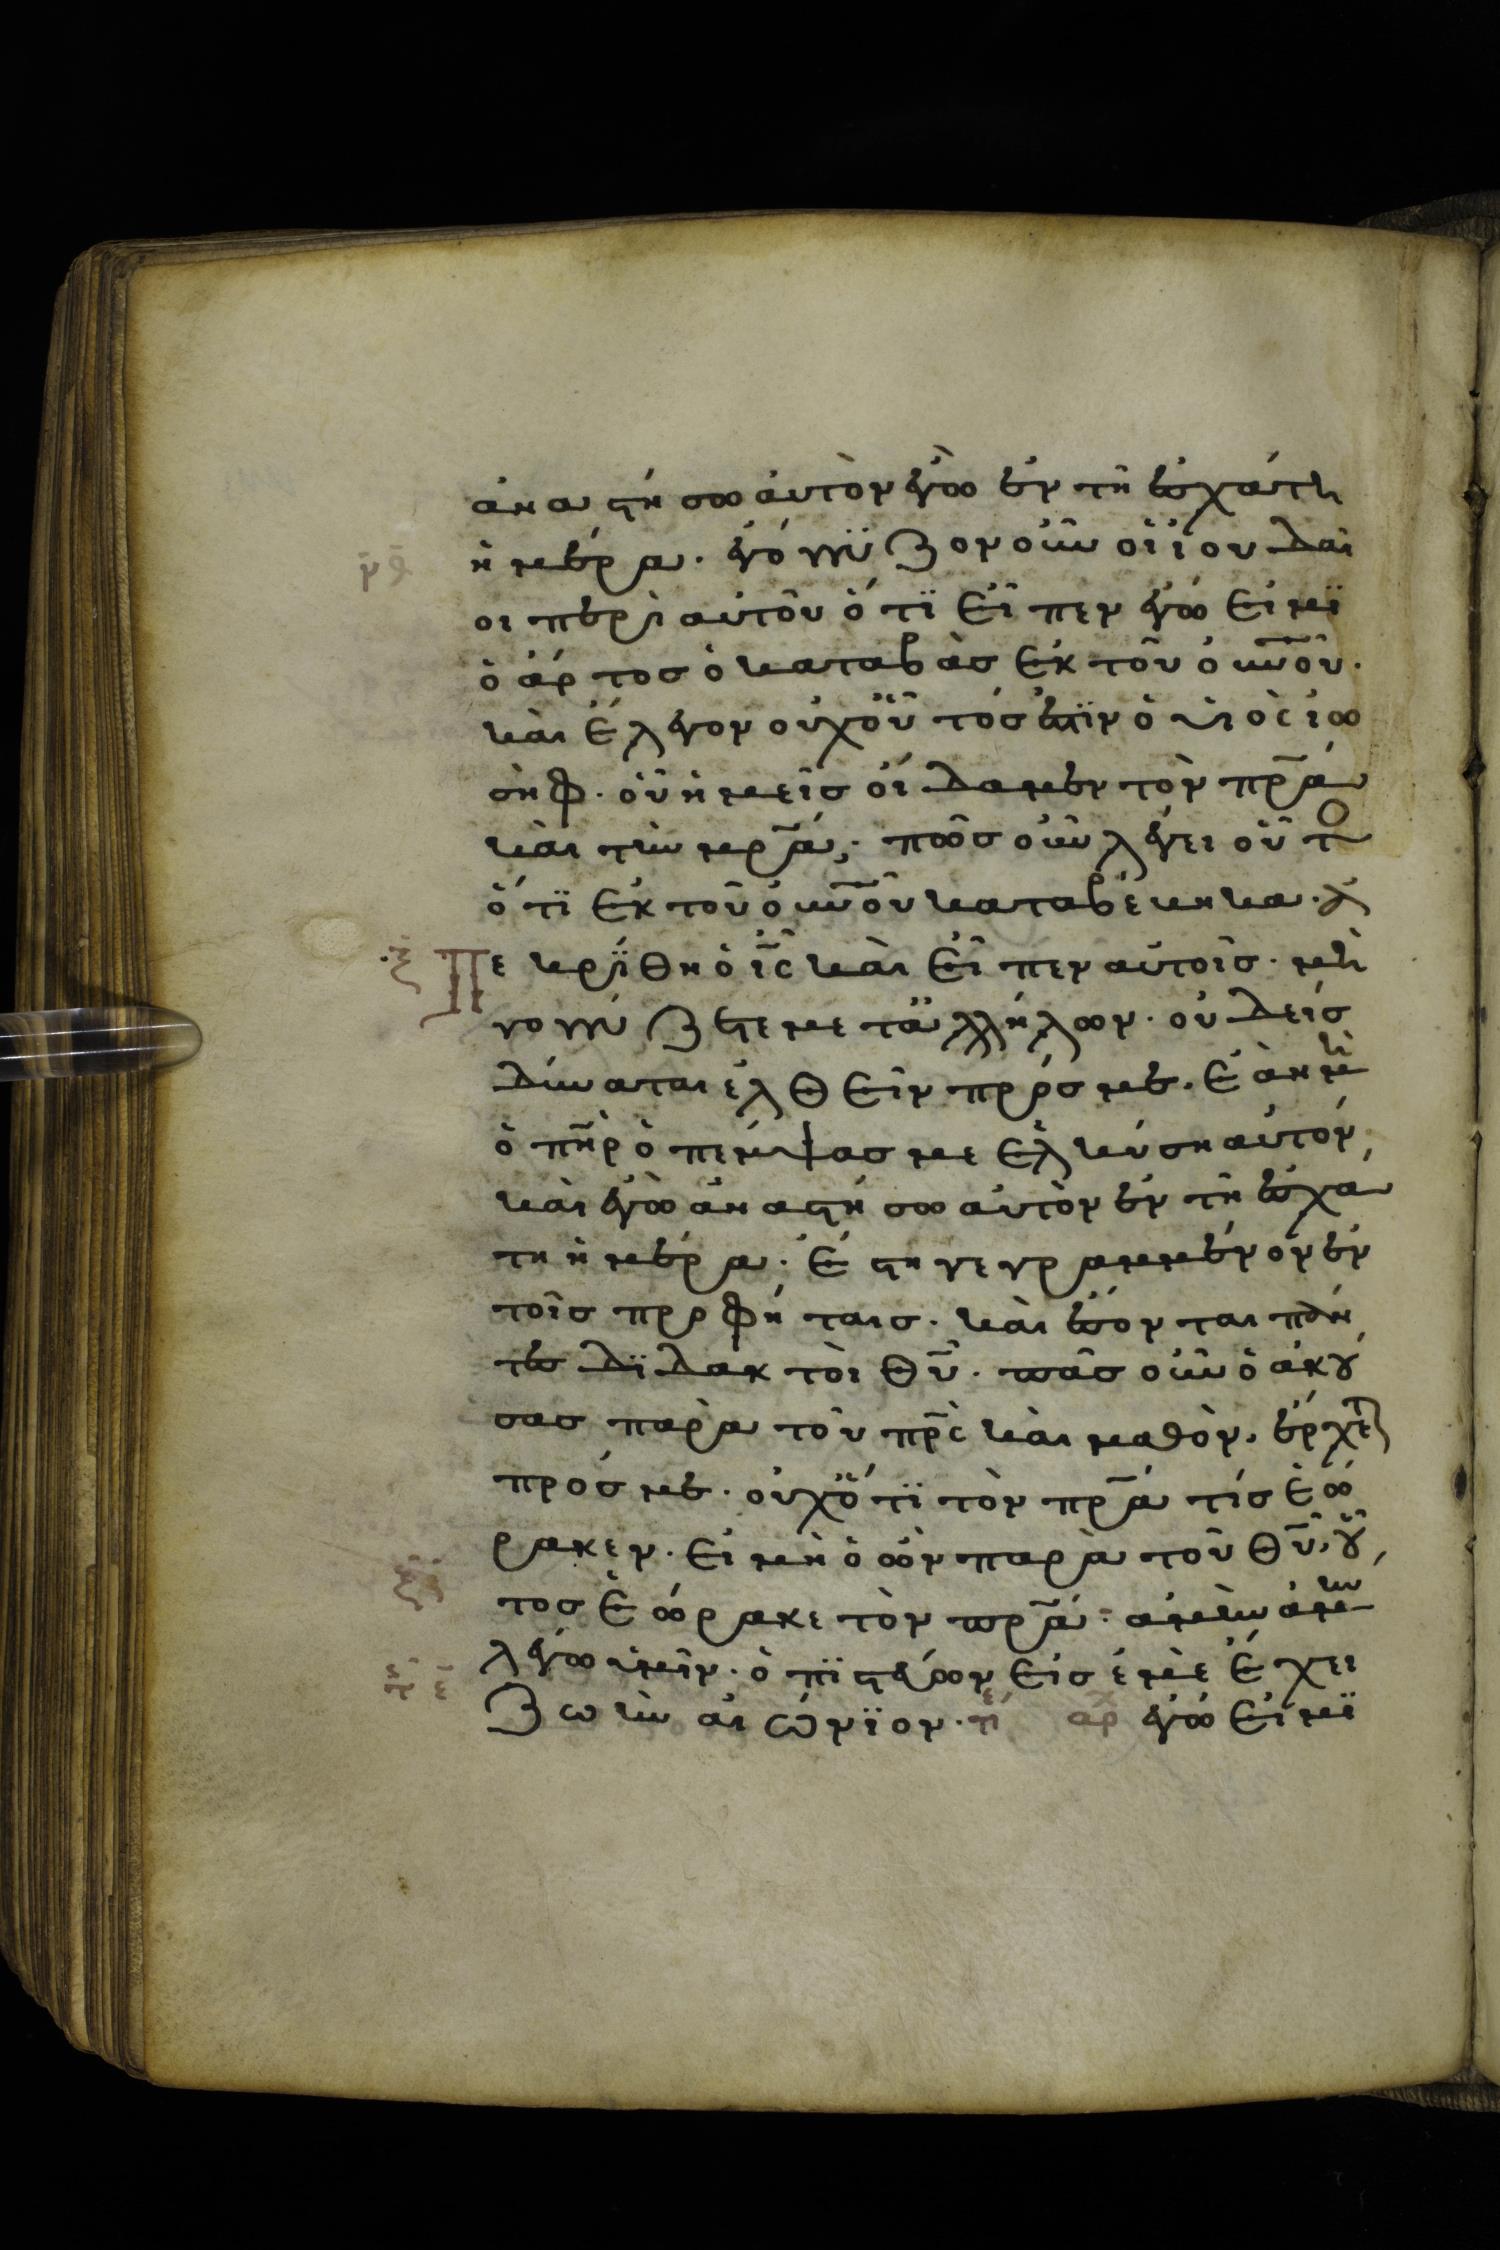 ἀναστήσω αὐτὸν ἐγὼ ἐν τῆ ἐσχάτη
ν̄θ̄ ἡμέρα. ἐγόγγϋζον οὖν οἱ ἰουδαῖ
οι περὶ αὐτοῦ ὅτϊ εἶπεν ἐγώ εἰμϊ
ὁ ἄρτος ὁ καταβὰς ἐκ τοῦ οὐν̄οῦ.
καὶ ἔλεγον οὐχοὗτός ἐστϊν ὁ υἱὸς ἰω
σὴφ. οὗ ἡμεῖς οἴδαμεν τὸν πρ̄ά
καὶ τὴν μρ̄ά; πῶς οὖν λέγει οὗτο
ὅτϊ ἐκ τοῦ οὐν̄οῦ καταβέκηκα. ἀ
ξ̄ Πεκρΐθη ὁ ῑς̄ καὶ εἶπεν αὐτοῖς. μὴ
γογγύζετε μετἀλλήλων. οὐδείς
δύναται ἐλθεῖν πρός με. ἐὰν μὴ
ὁ πη̄ρ ὁ πέμψας με ἑλκύση αὐτόν,
καὶ ἐγὼ ἀναστήσω αὐτὸν ἐν τῆ ἐσχά
τη ἡμέρα. ἔστη γεγραμμένον ἐν
τοῖς προφήταις. καὶ ἔσονται πάν
τες δϊδακτοὶ θῡ. πᾶς οὖν ὁ ἀκού
σας παρὰ τοῦ πρ̄ς καὶ μαθὸν. ἔρχεται
πρός με. οὐχὅτϊ τὸν πρ̄ά τίς ἑώ
ρακεν. εἰ μὴ ὁ ὢν παρὰ τοῦ θῡ, οὗ
ξ̄ᾱ τος ἑώρακε τὸν πρ̄ά. ἀμὴν ἀμὴν
λέγω ὑμῖν. ὁ πϊστεύων εἰς ἐμὲ ἔχει
ζωὴν αἰώνϊον. τέ ἀρχ ἐγώ εἰμϊ